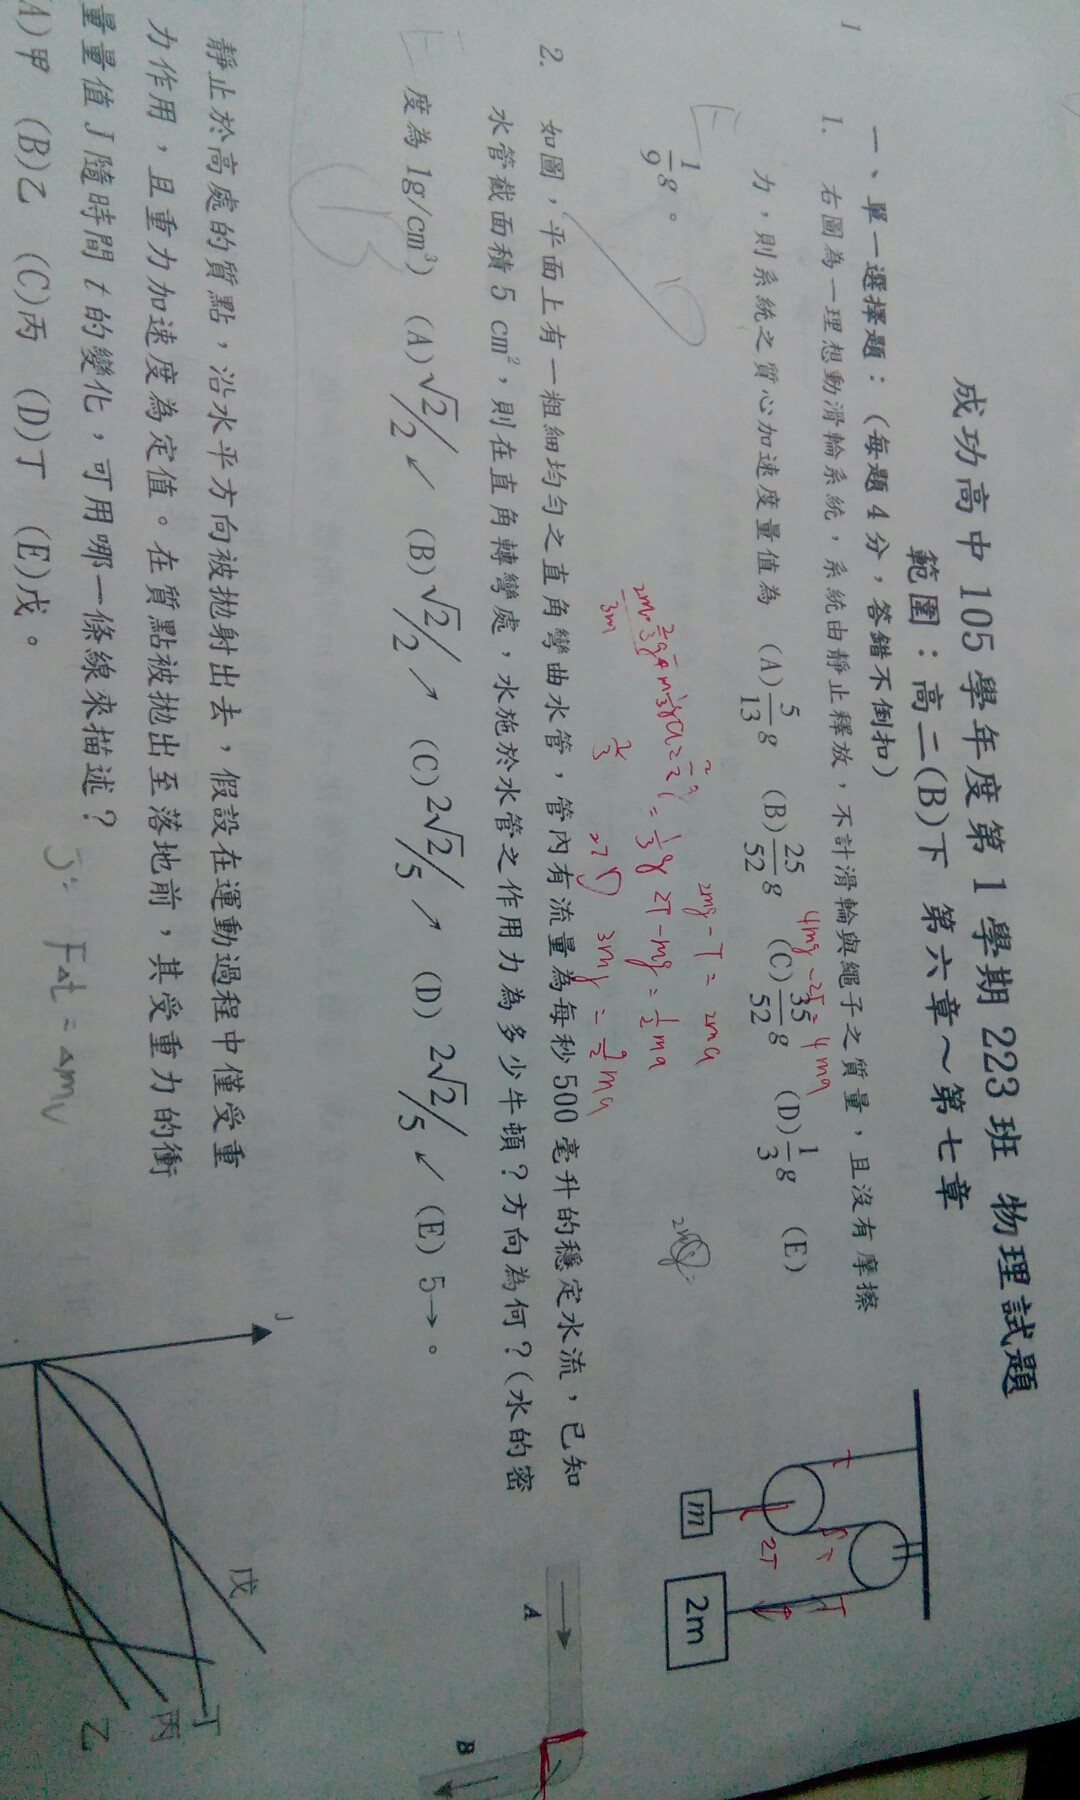 成功高中 105 學年度第 1 學期 223 班 物理試題
範圍：高二(B)下 第六章～第七章
1
一、單一選擇題：(每題 4 分，答錯不倒扣)
1. 右圖為一理想動滑輪系統，系統由靜止釋放，不計滑輪與繩子之質量，且沒有摩擦
力，則系統之質心加速度量值為 (A) 5/13 g (B) 25/52 g (C) 35/52 g (D) 1/3 g (E)
1/9 g。
E
4mg - 2T = 4ma
2mg - T = 2ma
2T - mg = 1/2 ma
3mg = 9/2 ma
T
T
T
2T
m
2m
2. 如圖，平面上有一粗細均勻之直角彎曲水管，管內有流量為每秒 500 毫升的穩定水流，已知
水管截面積 5 cm²，則在直角轉彎處，水施於水管之作用力為多少牛頓？方向為何？(水的密
度為 1g/cm³) (A) √2/2 ↙ (B) √2/2 ↗ (C) 2√2/5 ↗ (D) 2√2/5 ↙ (E) 5→。
E
A
B
靜止於高處的質點，沿水平方向被拋射出去，假設在運動過程中僅受重
力作用，且重力加速度為定值。在質點被拋出至落地前，其受重力的衝
量量值 J 隨時間 t 的變化，可用哪一條線來描述？
A)甲 (B)乙 (C)丙 (D)丁 (E)戊。
B
J = F△t = △mv
J
戊
丁
丙
乙